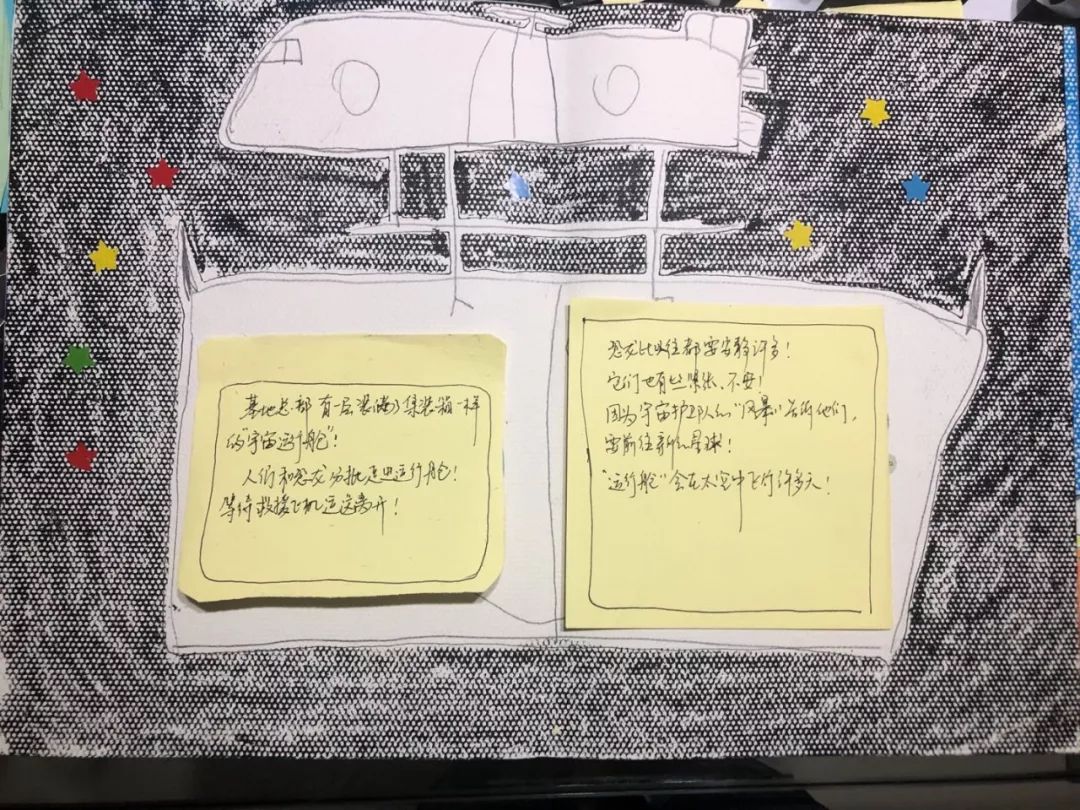 基地总部有一层装满了集装箱一样
的"宇宙运行舱"!
人们和恐龙分批走进运行舱!
等待救援飞机运送离开!
恐龙比以往都要安静许多!
它们也有些紧张、不安!
因为宇宙护卫队的"风暴"告诉他们,
要前往新的星球!
"运行舱"会在太空中飞行许多天!